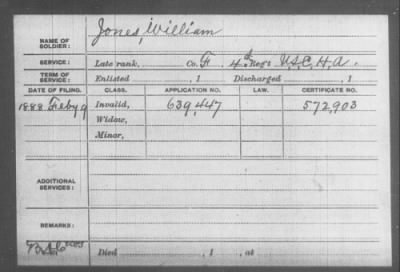 NAME OF SOLDIER: Jones, William
SERVICE: Late rank, Co. F. 4th Reg't U.S.C.H.A.
TERM OF SERVICE: Enlisted , 1 Discharged , 1
DATE OF FILING. CLASS. APPLICATION NO. LAW. CERTIFICATE NO.
1888 Feby 9 Invalid, 639,447 572,903
Widow,
Minor,
ADDITIONAL SERVICES:
REMARKS:
Died , 1 , at